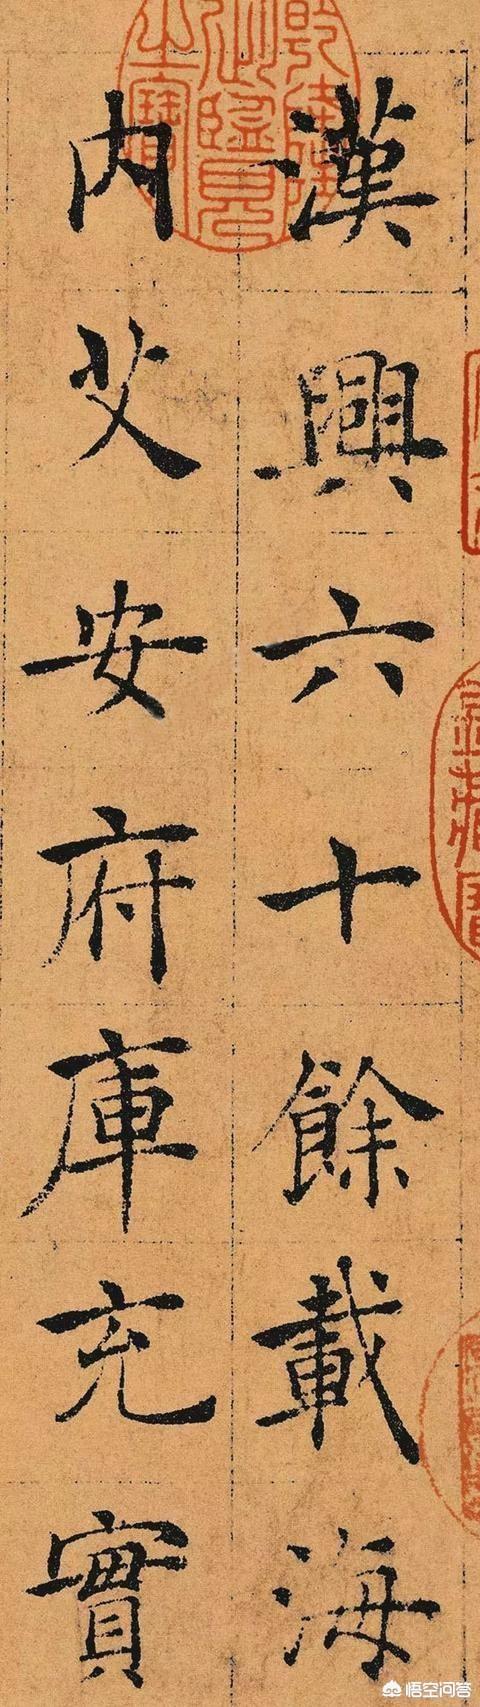 漢興六十餘載海
內艾安府庫充實
悟空问答